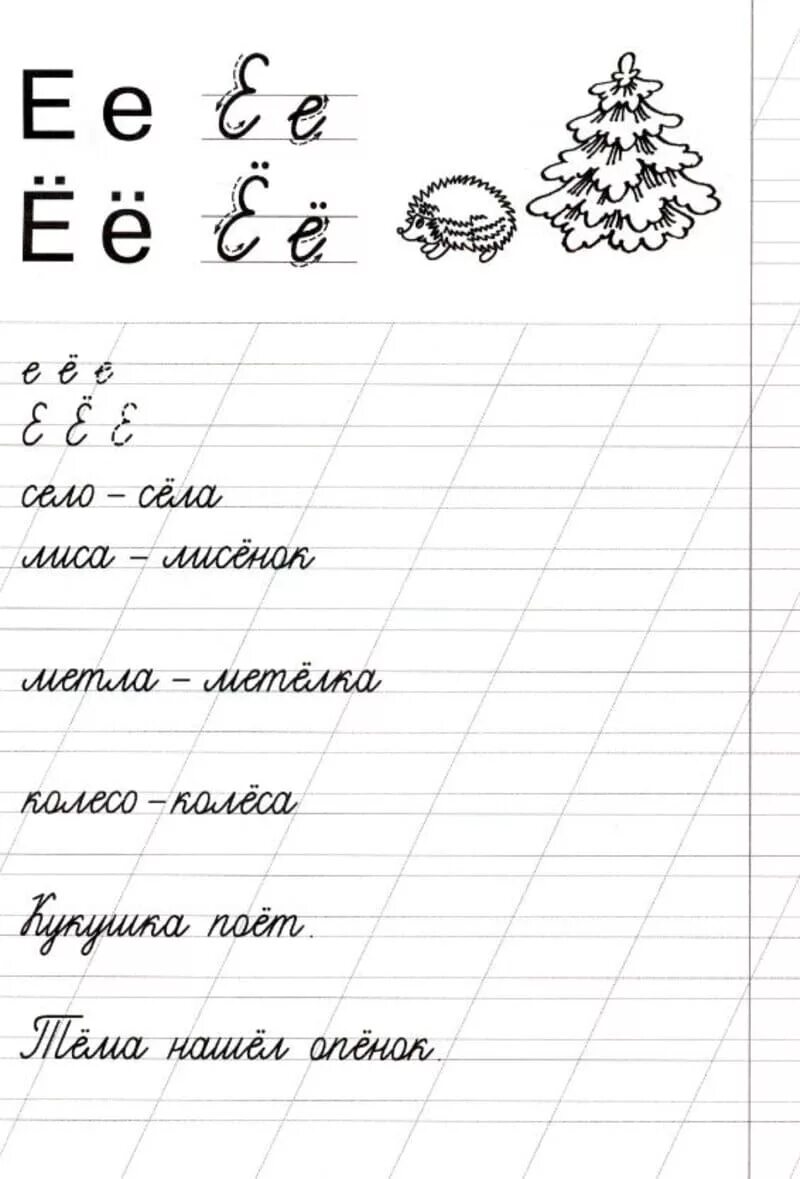 Е е Е е
Ё ё Ё ё
е ё е
Е Ё Е
село – сёла
лиса – лисёнок
метла – метёлка
колесо – колёса
Кукушка поёт.
Тёма нашёл опёнок.